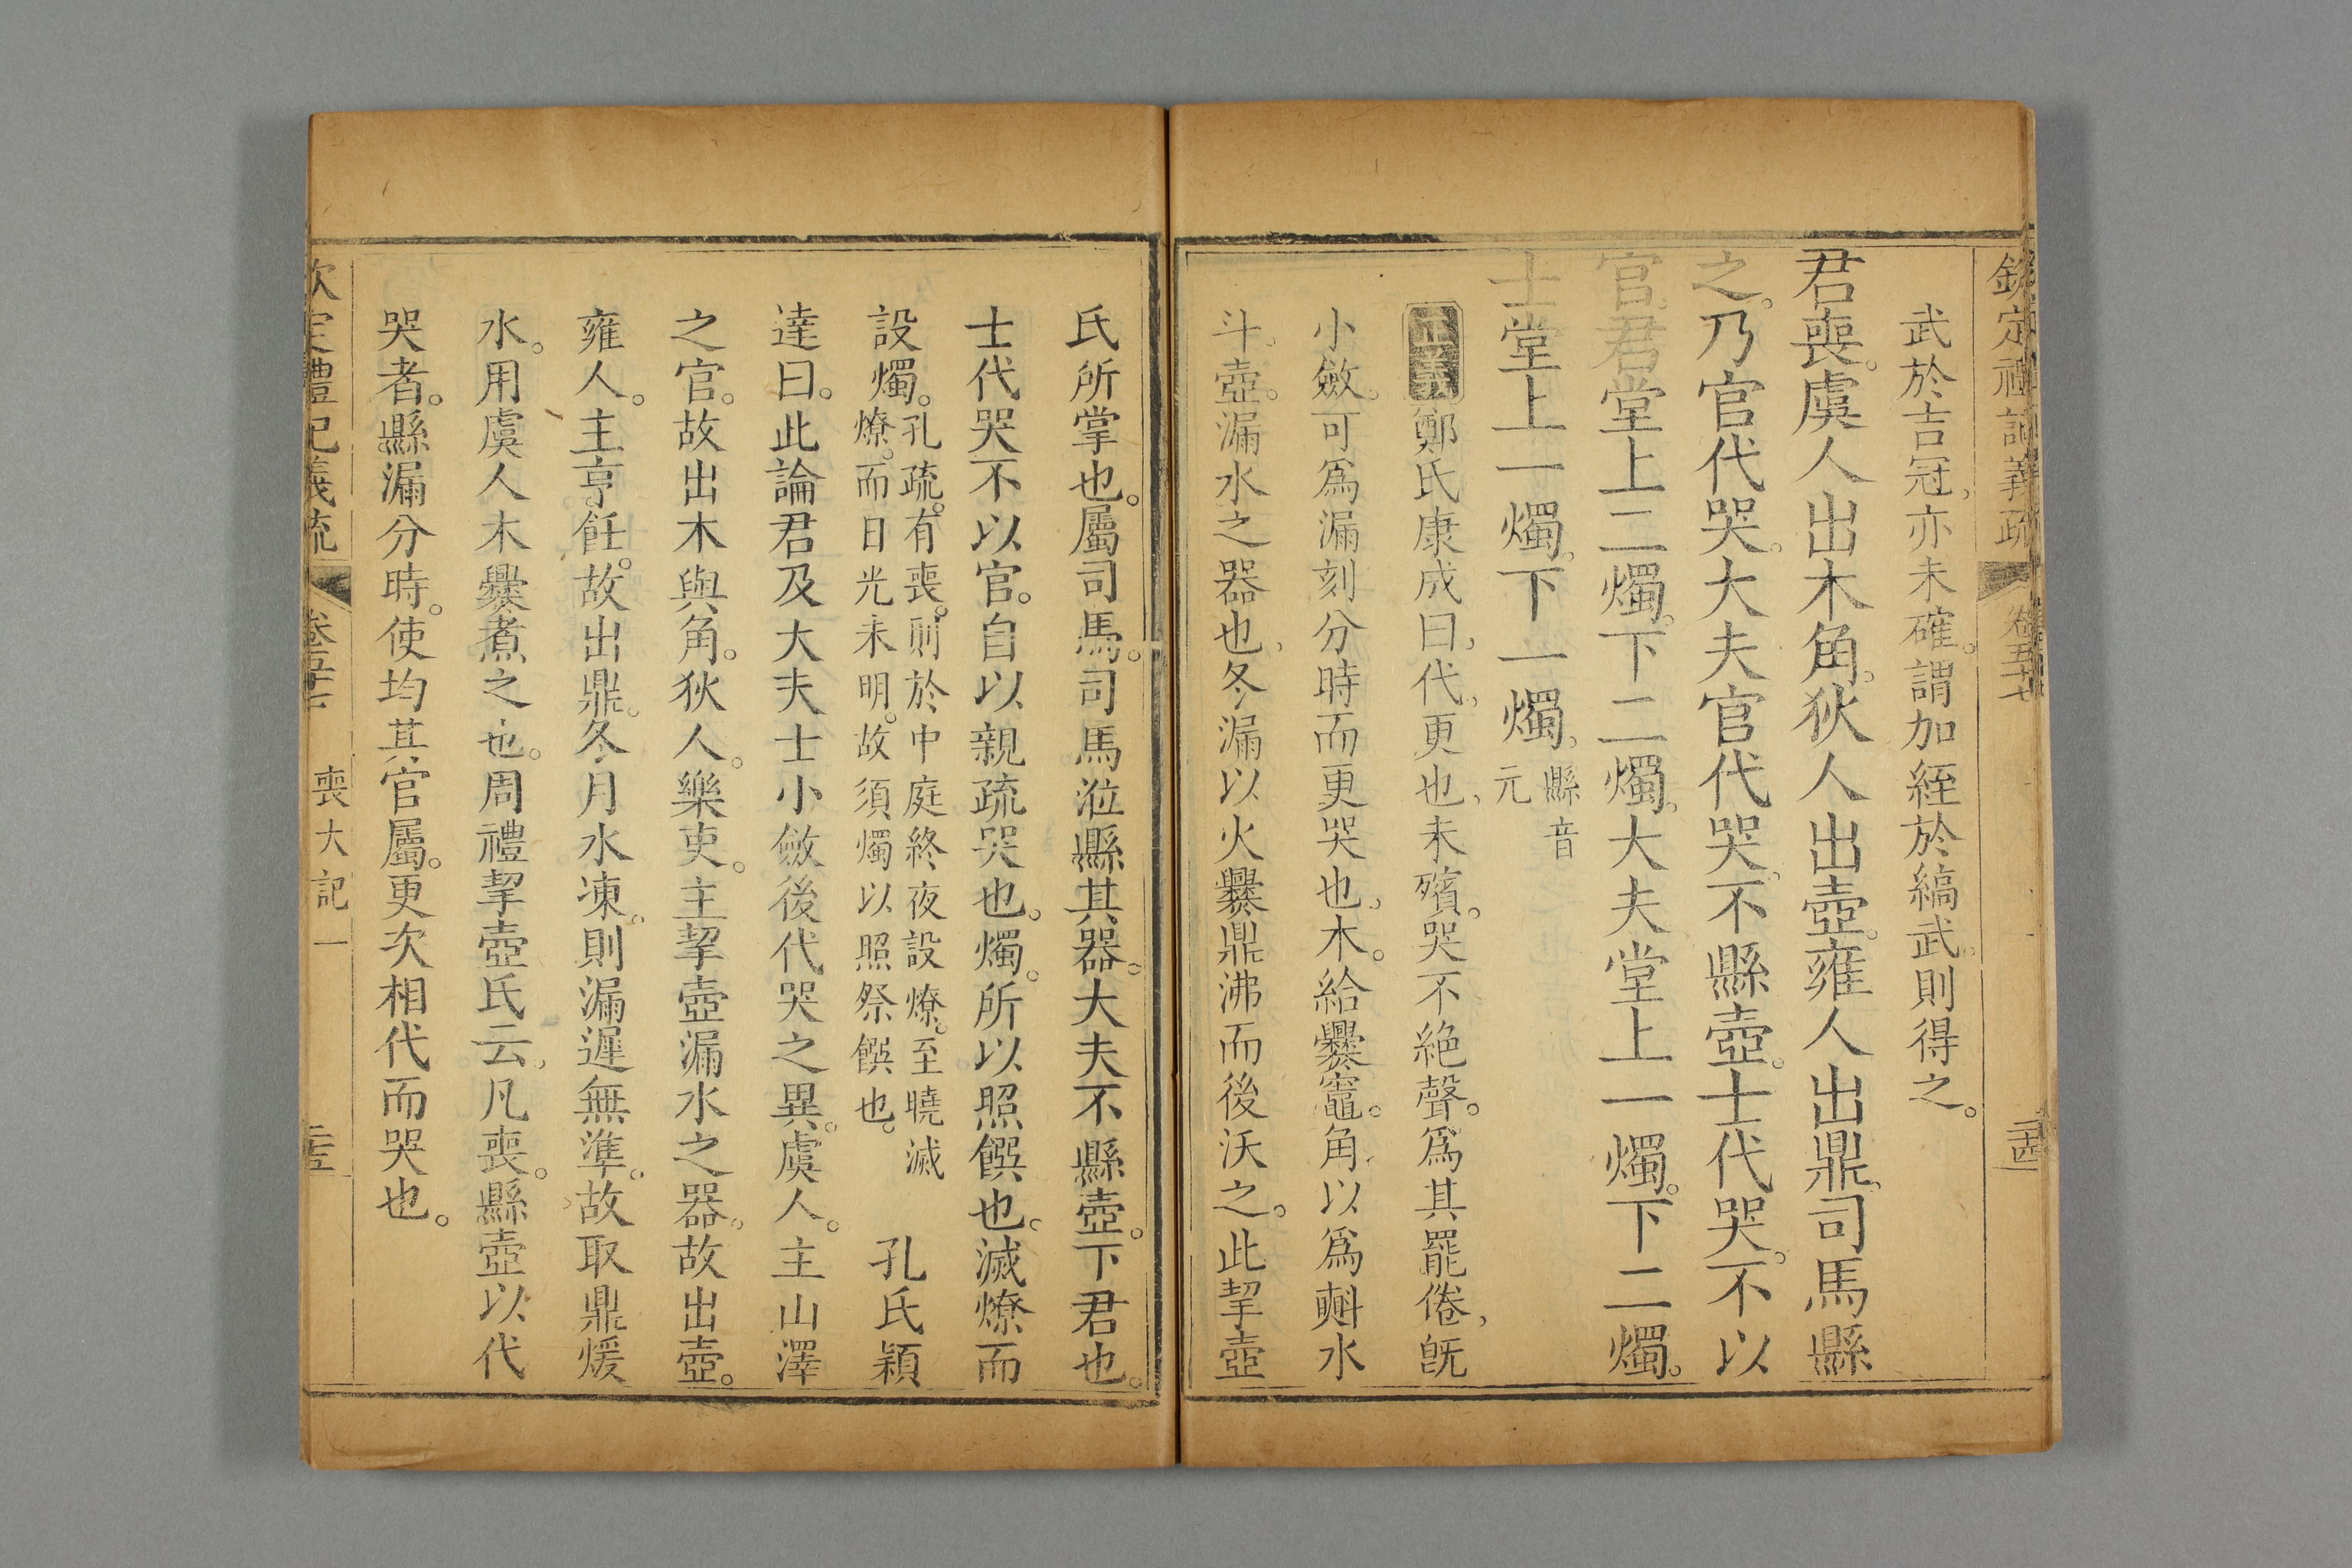 欽定禮記義疏 卷五十七 二十四
武於吉冠亦未確。謂加絰於縞武。則得之。
君喪。虞人出木角。狄人出壺。雍人出鼎。司馬縣
之。乃官代哭。大夫官代哭。不縣壺。士代哭。不以
官。君堂上二燭。下二燭。大夫堂上一燭。下二燭。
士堂上一燭。下一燭。縣音
元
正義鄭氏康成曰。代。更也。未殯。哭不絶聲。爲其罷倦。既
小斂。可爲漏刻分時而更哭也。木。給爨竈。角。以爲㪺水
斗。壺。漏水之器也。冬漏以火爨鼎沸而後沃之。此挈壺
氏所掌也。屬司馬。司馬涖縣其器。大夫不縣壺。下君也。
士代哭不以官。自以親疏哭也。燭。所以照饌也。滅燎而
設燭。孔疏。有喪。則於中庭終夜設燎。至曉滅
燎。而日光未明。故須燭以照祭饌也。 孔氏穎
達曰。此論君及大夫士小斂後代哭之異。虞人。主山澤
之官。故出木與角。狄人。樂吏。主挈壺漏水之器。故出壺。
雍人。主亨飪。故出鼎。冬月水凍。則漏遲無準。故取鼎煖
水。用虞人木爨煮之也。周禮挈壺氏云。凡喪。縣壺以代
哭者。縣漏分時。使均其官屬。更次相代而哭也。
欽定禮記義疏 卷五十七 喪大記一 二十五